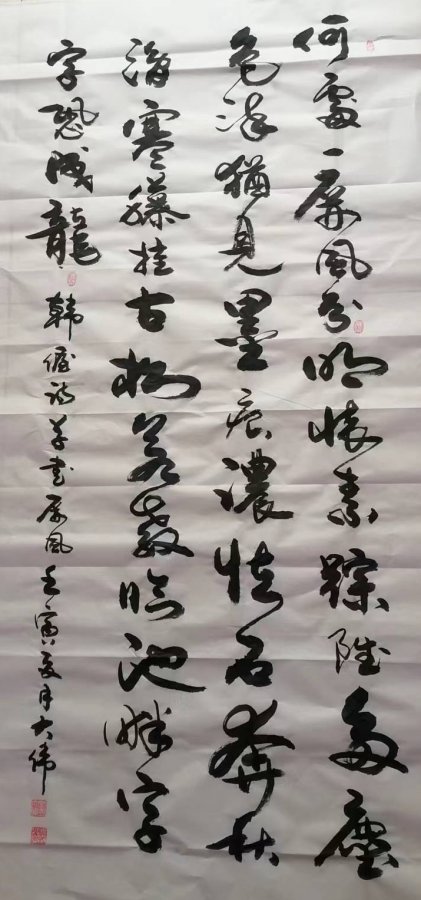 何處一屏風分明懷素蹤雖多塵
色染猶見墨痕濃怪石奔秋
澗寒藤挂古松若教臨池畔字
字恐成龍 韓偓詩草書屏風 壬寅夏月大偉